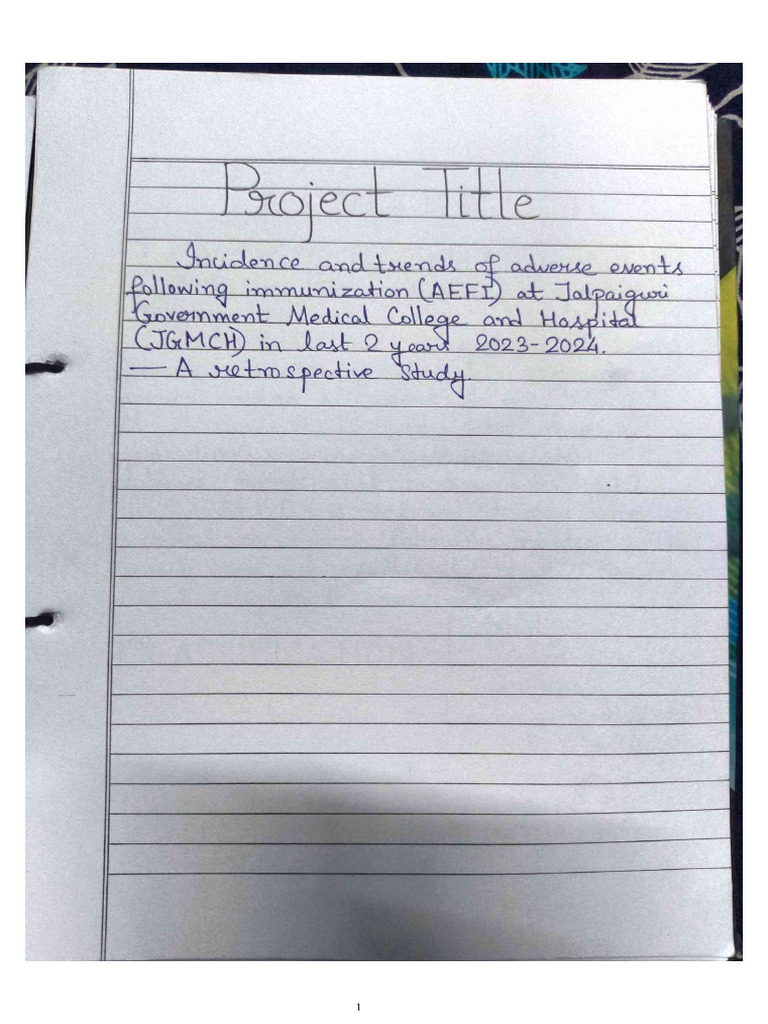 Project Title
Incidence and trends of adverse events
following immunization (AEFI) at Jalpaiguri
Government Medical College and Hospital
(JGMCH) in last 2 years 2023-2024.
— A retrospective study.
1